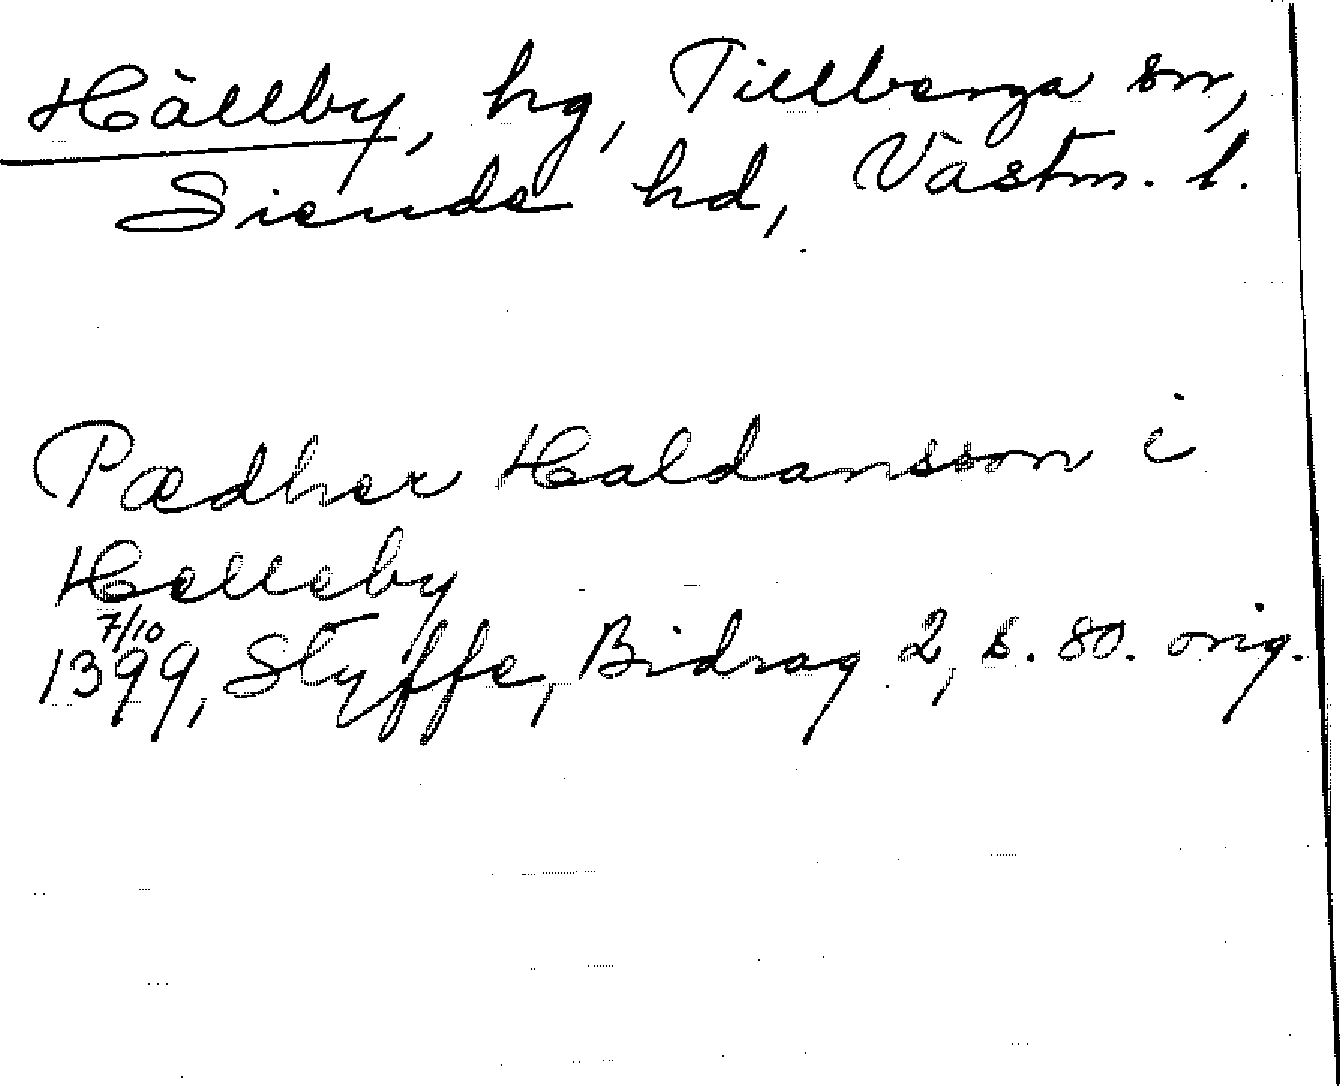 Hällby, hg, Tillberga sn,
Siende hd, Västm. l.
Pædher Haldansson i
Helleby
7/10
1399, Styffe, Bidrag 2, s. 80. orig.